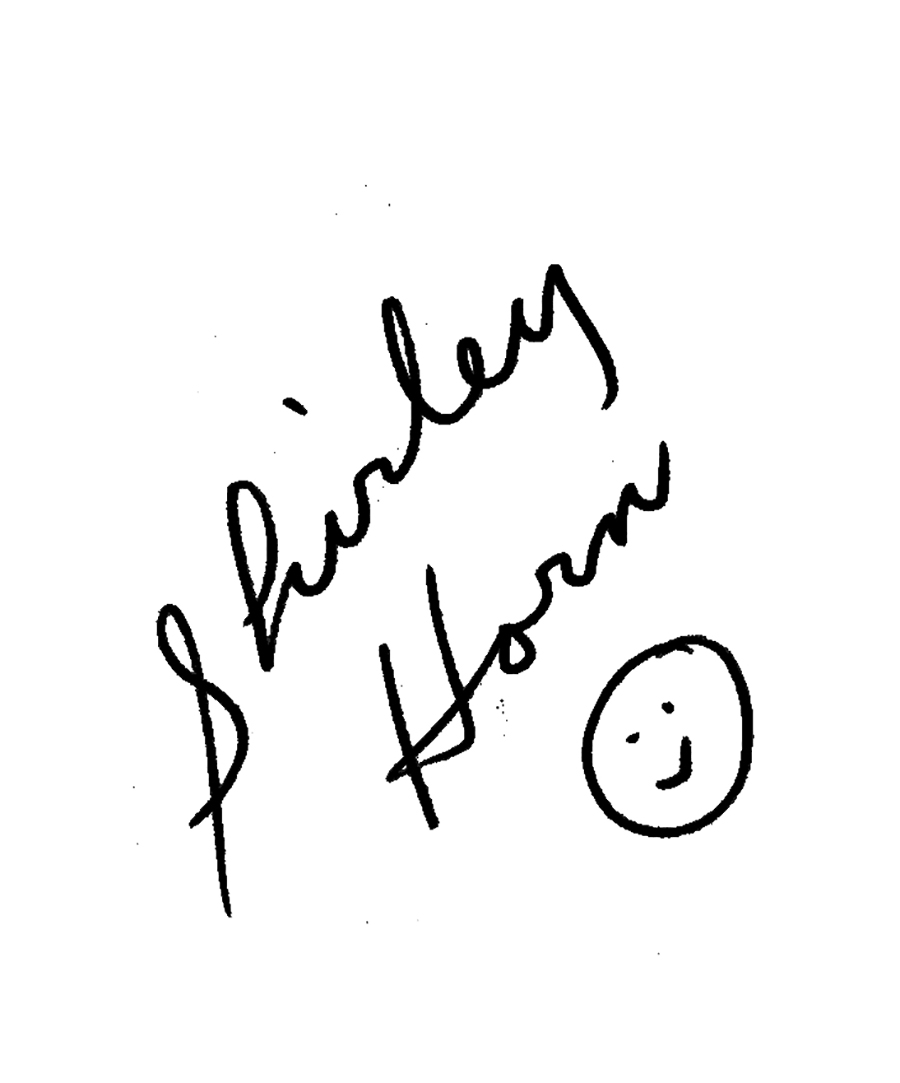 Shirley
Horn